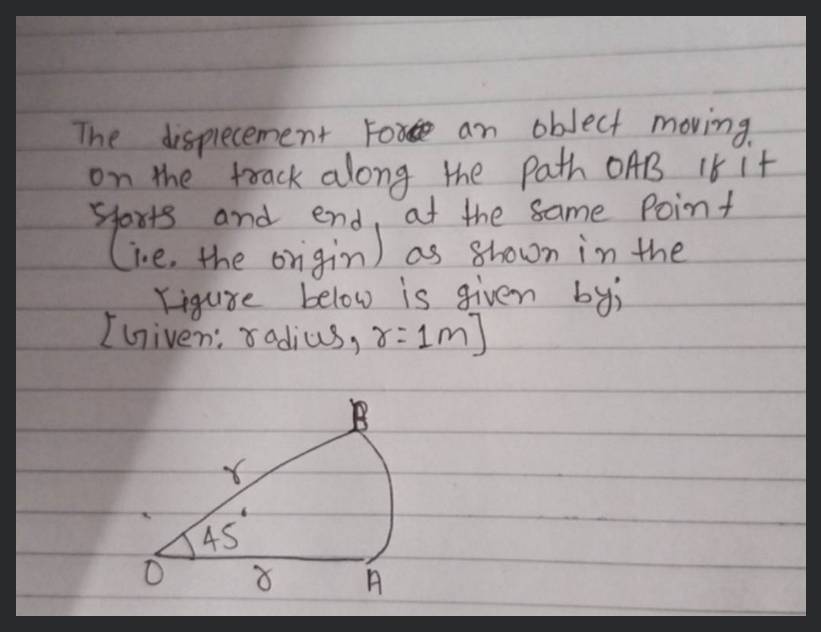 The displecement Force an object moving
on the track along the Path OAB If it
starts and end, at the same Point
(i.e. the origin) as shown in the
Figure below is given by;
[Given: radius, r=1m]
B
r
45°
O
r
A